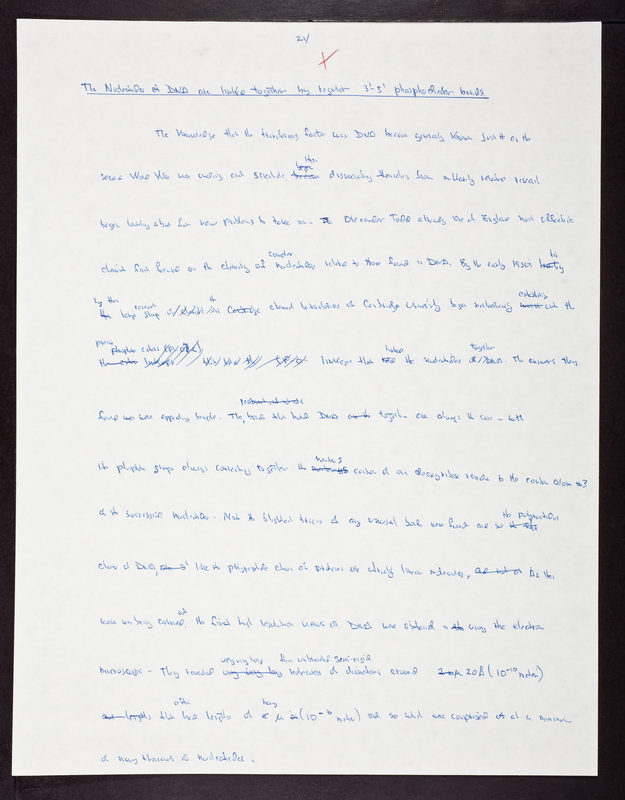 21/
X
The Nucleotides of DNA are linked together by regular 3'-5' phosphodiester bonds
The knowledge that the transforming factor was DNA became generally known just as the
second World War was ending and scientists, then disassociating themselves from military related research
began looking about for new problems to take on. Alexander Todd already one of England most effective
chemist first focused on the chemistry of nucleotides related to those found in DNA. By the early 1950s his
by then large group in the chemical laboratories of Cambridge University began establishing the
precise phosphate linkages that linked the nucleotides of DNA together. The answers they
found were simple. The bonds that held DNA together are always the same – with
the phosphate group always connecting together the number 5 carbon of one deoxyribose residue to the carbon atom #3
of the successive nucleotide. Not the slightest traces of any unusual bonds were found and so the polynucleotide
chains of DNA, like the polypeptide chains of proteins are strictly linear molecules. As this
work was being carried out, the first high resolution views of DNA were obtained using the electron
microscope – They revealed very very long thin unbranched semi-rigid molecules of diameters around 20Å (10⁻¹⁰ meters)
that often had lengths of many μ (10⁻⁶ meter) and so which were comprised of a minimum
of many thousands of nucleotides.